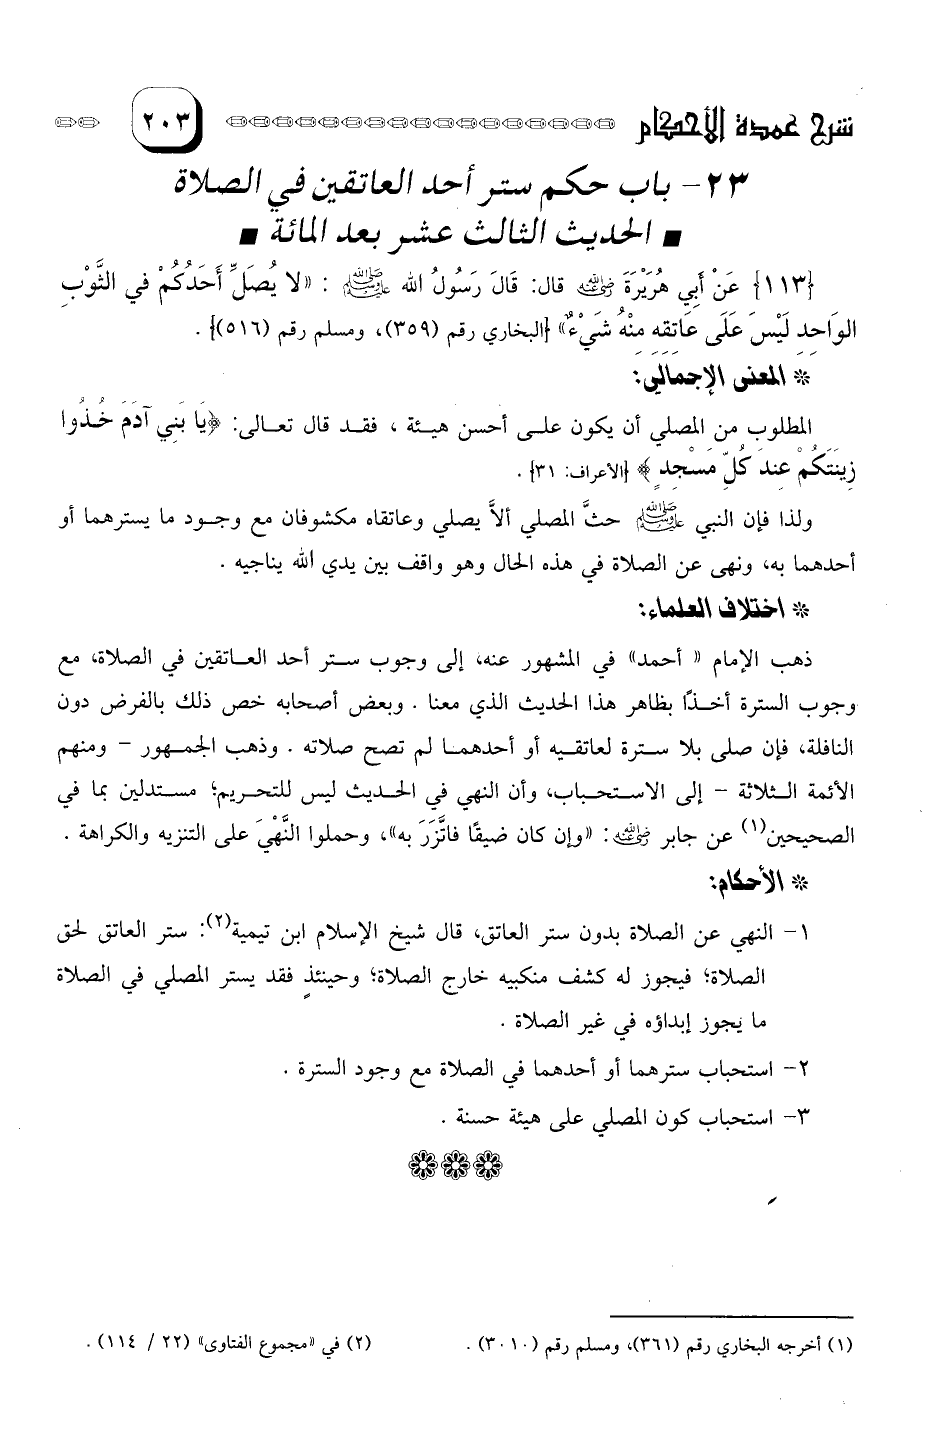 شرح عمدة الأحكام ٢٠٣
٢٣- باب حكم ستر أحد العاتقين في الصلاة
■ الحديث الثالث عشر بعد المائة ■
{١١٣} عَنْ أَبِي هُرَيْرَةَ رضي الله عنه قال: قَالَ رَسُولُ الله ﷺ : «لا يُصَلِّ أَحَدُكُمْ في الثَّوْبِ
الوَاحدِ لَيْسَ عَلَى عَاتقِه مِنْهُ شَيْءٌ» {البخاري رقم (٣٥٩)، ومسلم رقم (٥١٦)} .
* المعنى الإجمالي:
المطلوب من المصلي أن يكون على أحسن هيئة ، فقد قال تعالى: ﴿يَا بَنِي آدَمَ خُذُوا
زِينَتَكُمْ عِندَ كُلِّ مَسْجِدٍ ﴾ {الأعراف: ٣١} .
ولذا فإن النبي ﷺ حثَّ المصلي ألاَّ يصلي وعاتقاه مكشوفان مع وجود ما يسترهما أو
أحدهما به، ونهى عن الصلاة في هذه الحال وهو واقف بين يدي الله يناجيه .
* اختلاف العلماء:
ذهب الإمام « أحمد» في المشهور عنه، إلى وجوب ستر أحد العاتقين في الصلاة، مع
وجوب السترة أخذًا بظاهر هذا الحديث الذي معنا . وبعض أصحابه خص ذلك بالفرض دون
النافلة، فإن صلى بلا سترة لعاتقيه أو أحدهما لم تصح صلاته . وذهب الجمهور - ومنهم
الأئمة الثلاثة - إلى الاستحباب، وأن النهي في الحديث ليس للتحريم؛ مستدلين بما في
الصحيحين(١) عن جابر رضي الله عنه : «وإن كان ضيقًا فاتَّزَرَ به»، وحملوا النَّهْيَ على التنزيه والكراهة .
* الأحكام:
١- النهي عن الصلاة بدون ستر العاتق، قال شيخ الإسلام ابن تيمية(٢): ستر العاتق لحق
الصلاة؛ فيجوز له كشف منكبيه خارج الصلاة؛ وحينئذٍ فقد يستر المصلي في الصلاة
ما يجوز إبداؤه في غير الصلاة .
٢- استحباب سترهما أو أحدهما في الصلاة مع وجود السترة .
٣- استحباب كون المصلي على هيئة حسنة .
(١) أخرجه البخاري رقم (٣٦١)، ومسلم رقم (٣٠١٠) . (٢) في «مجموع الفتاوى» (٢٢ / ١١٤) .